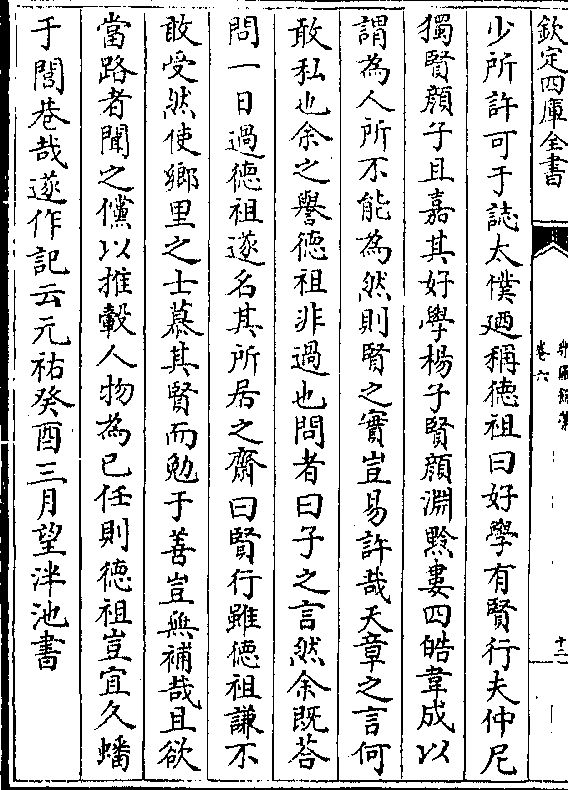 欽定四庫全書
卷六
十二
少所許可于誌太僕廼稱徳祖曰好學有賢行夫仲尼
獨賢顔子且嘉其好學楊子賢顔淵黔婁四皓韋成以
謂為人所不能為然則賢之實豈易許哉天章之言何
敢私也余之譽徳祖非過也問者曰子之言然余既荅
問一日過徳祖遂名其所居之齋曰賢行雖徳祖謙不
敢受然使鄉里之士慕其賢而勉于善豈無補哉且欲
當路者聞之儻以推轂人物為已任則徳祖豈宜久蟠
于閭巷哉遂作記云元祐癸酉三月望泮池書